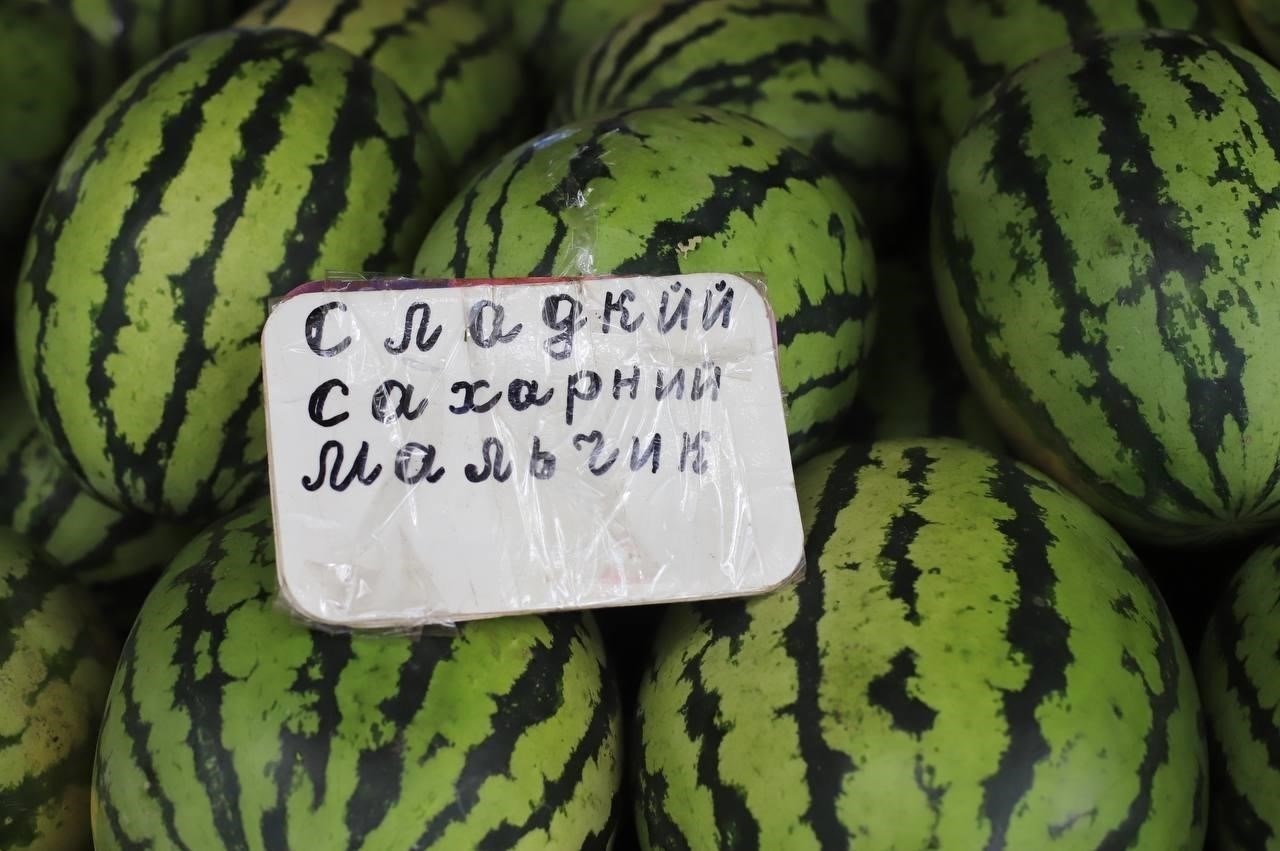 сладкий
сахарний
мальчик